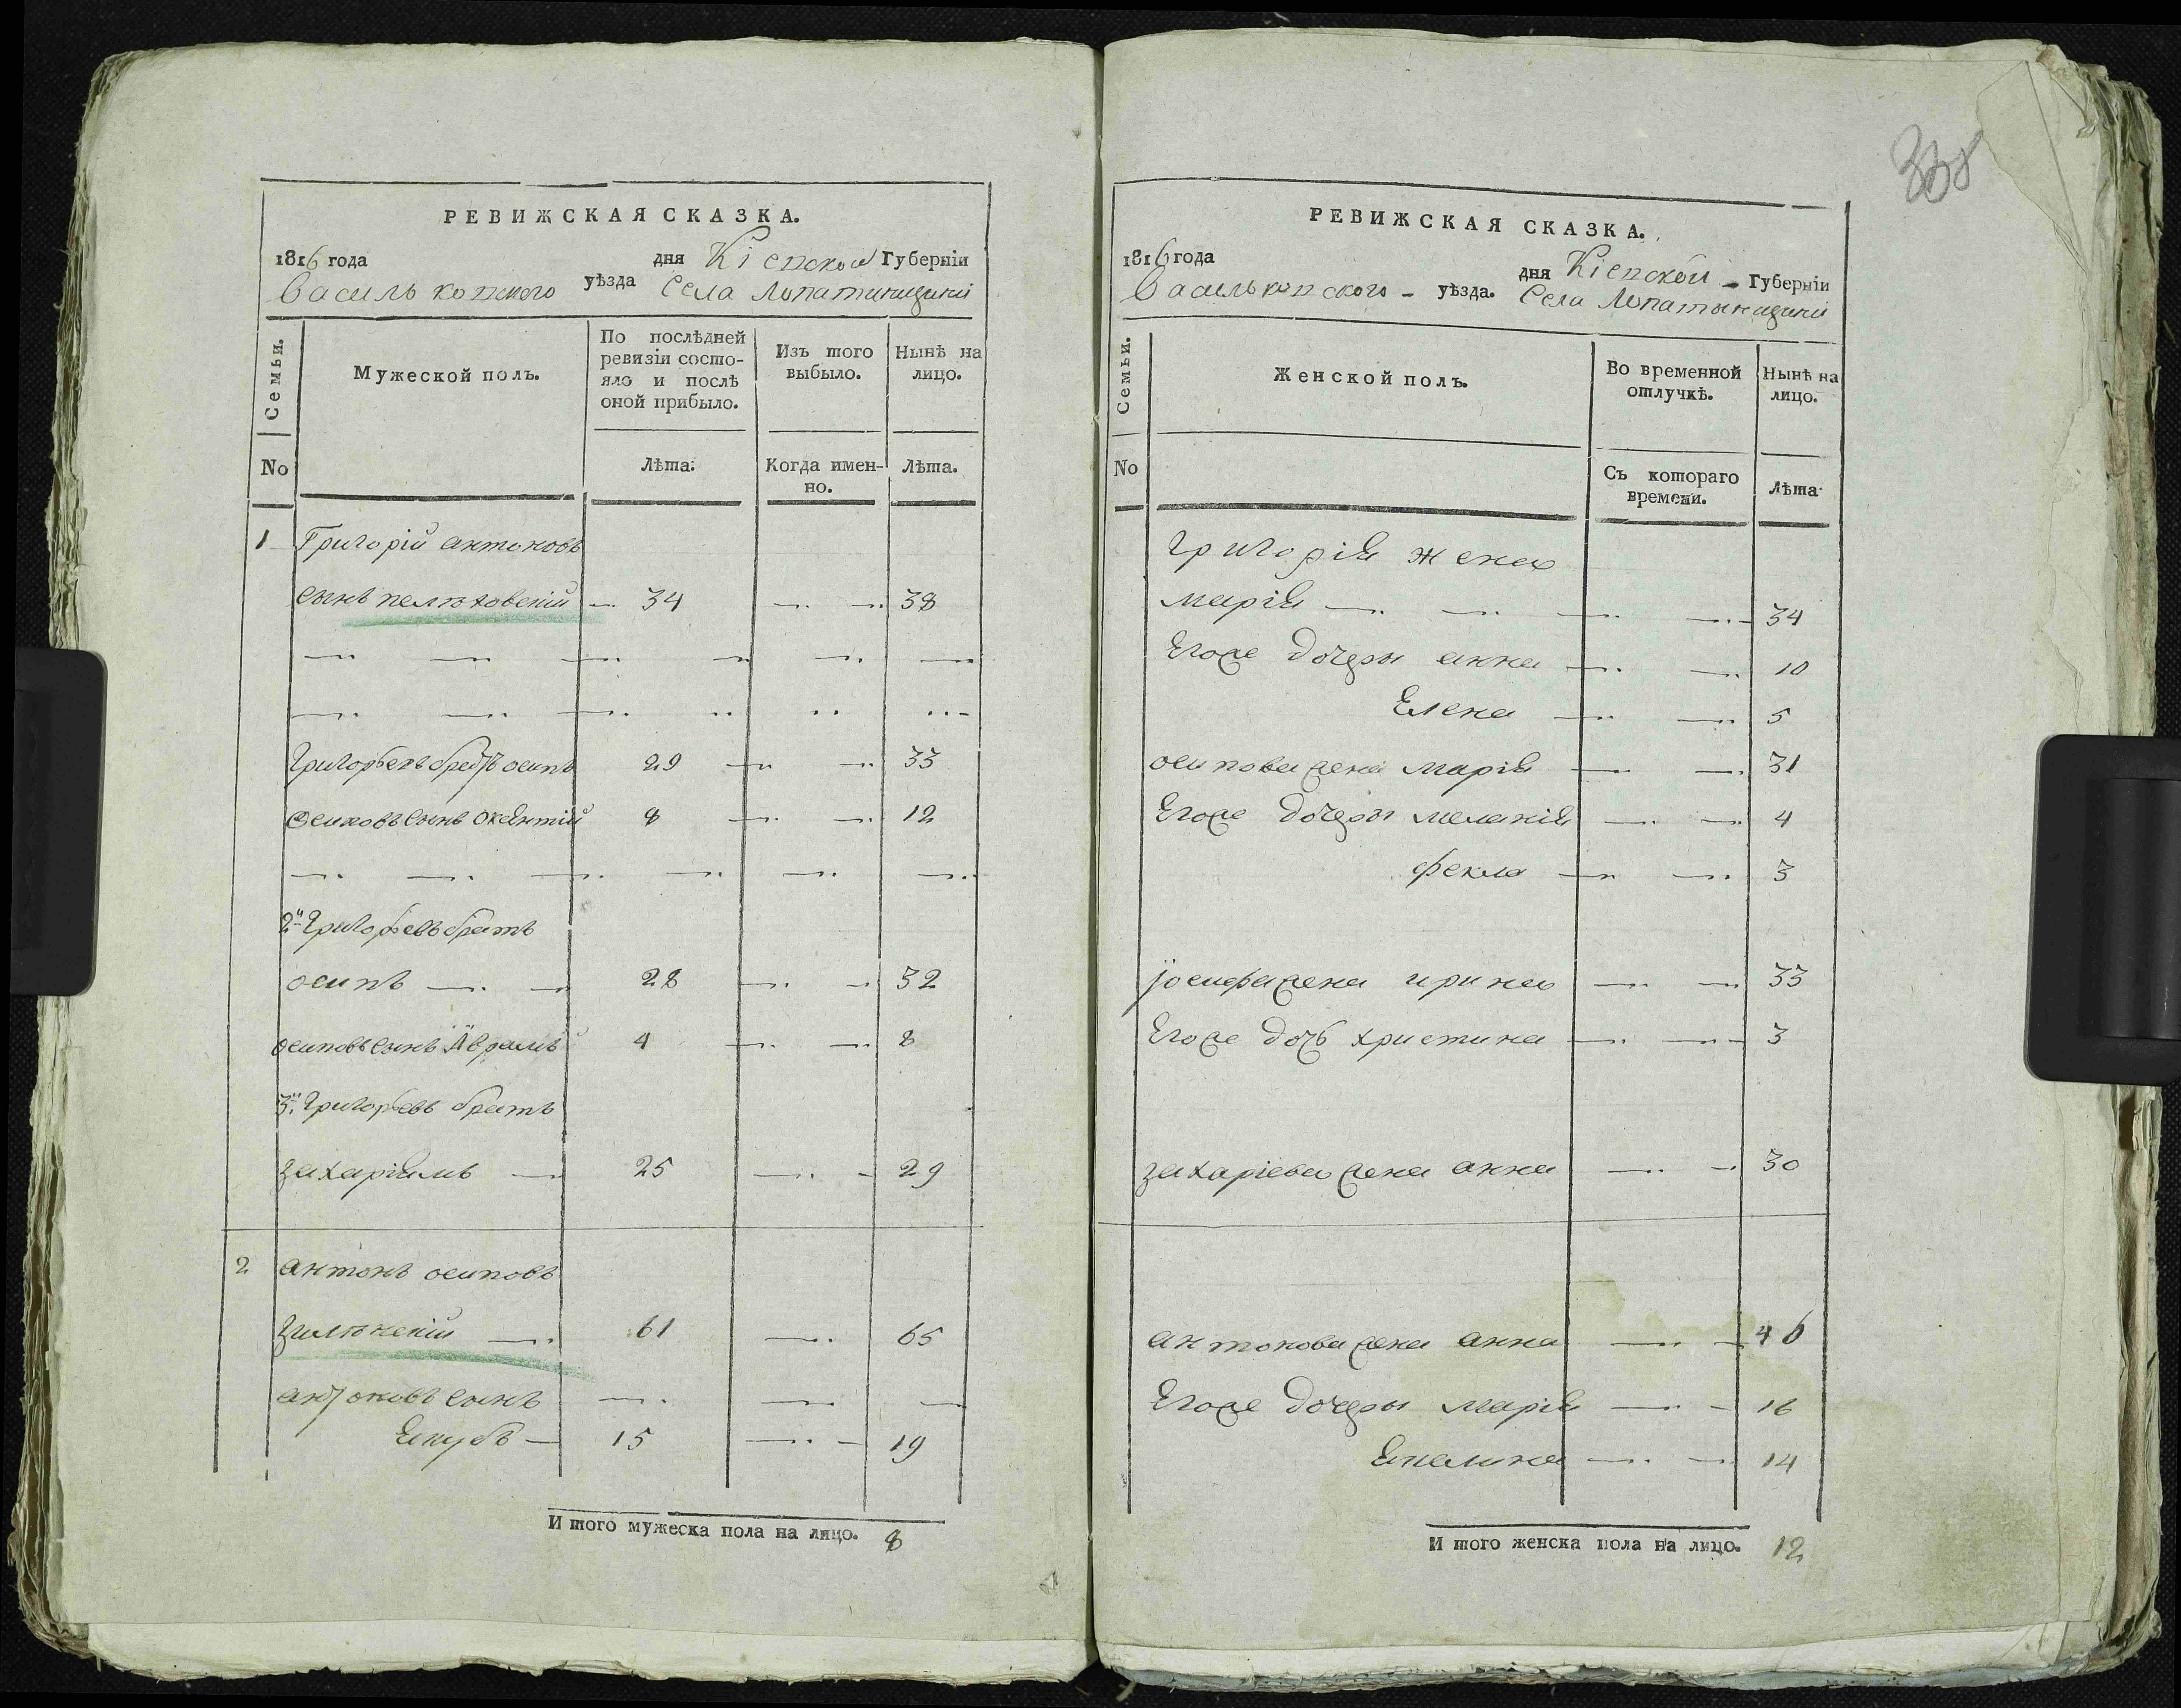 338
РЕВИЖСКАЯ СКАЗКА.
1816 года дня Кіевской Губерніи
Васильковского уѣзда Села Лопатинщини
Семьи.
Мужеской полъ.
По послѣдней ревизіи состояло и послѣ оной прибыло.
Изъ того выбыло.
Нынѣ на лицо.
No
Лѣта.
Когда именно.
Лѣта.
1 Григорій антоновъ
сынъ пелѣховскій 34 38
Григорьевъ братъ осипъ 29 33
Осиповъ сынъ Оксентій 8 12
2й Григорьевъ братъ
осипъ 28 32
осиповъ сынъ Аврамъ 4 8
3й Григорьевъ братъ
захаріямъ 25 29
2 антонъ осиповъ
61 65
антоновъ сынъ
Якубъ 15 19
И того мужеска пола на лицо. 8
РЕВИЖСКАЯ СКАЗКА.
1816 года дня Кіевской Губерніи
Васильковского уѣзда. Села Лопатынщини
Семьи.
Женской полъ.
Во временной отлучкѣ.
Нынѣ на лицо.
No
Съ котораго времени.
Лѣта
Григорія жена
марія 34
Егоже дочери анна 10
Елена 5
осипова жена марія 31
Егоже дочери меланія 4
фекла 3
іосифа жена ирина 33
Егоже дочь христина 3
захаріева жена анна 30
антонова жена анна 46
Егоже дочери марія 16
14
И того женска пола на лицо. 12